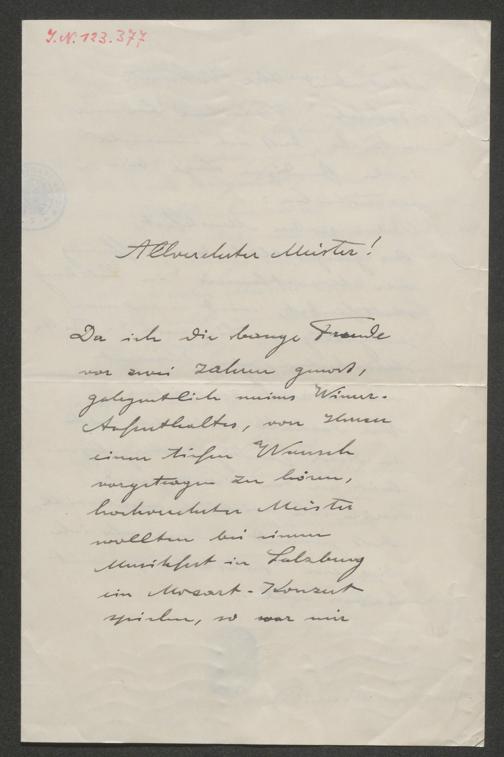 J.N. 123.377
Allverehrter Meister!
Da ich die bange Freude
vor zwei Jahren genoss,
gelegentlich meines Wiener-
Aufenthaltes, von Ihnen
einen tiefen Wunsch
vorgetragen zu hören,
hochverehrter Meister
wollten bei einem
Musikfest in Salzburg
ein Mozart-Konzert
spielen, so war mir